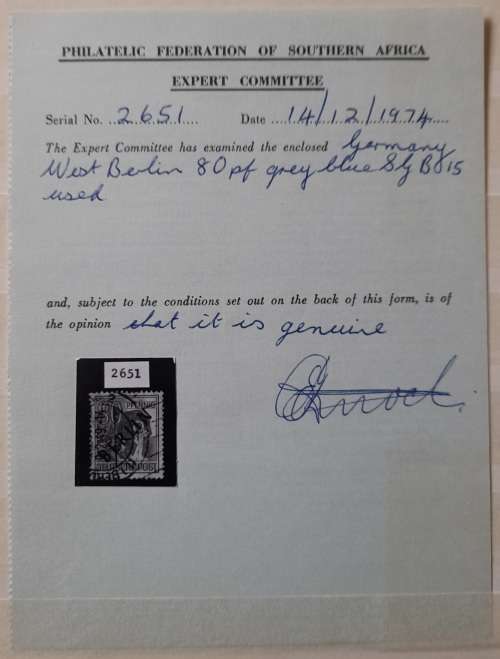 PHILATELIC FEDERATION OF SOUTHERN AFRICA
EXPERT COMMITTEE
Serial No. ..2651.... Date ....14/12/1974....
The Expert Committee has examined the enclosed Germany
West Berlin 80 pf grey blue S/g B 15
used
and, subject to the conditions set out on the back of this form, is of
the opinion that it is genuine
2651
PFENNIG
BERLIN